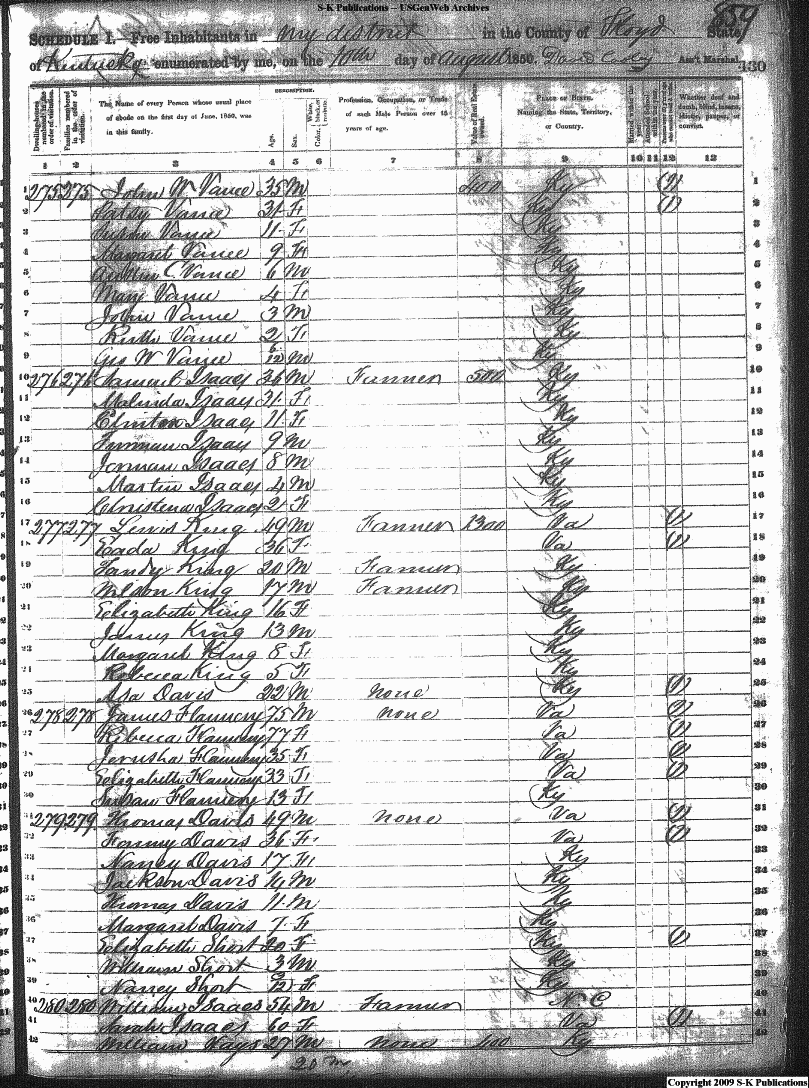 S-K Publications -- USGenWeb Archives
859
SCHEDULE I. Free Inhabitants in My district in the County of Floyd State
of Kentucky enumerated by me, on the 10th day of August 1850. Ass't Marshal. 430
DESCRIPTION.
Dwelling-houses numbered in the order of visitation. Families numbered in the order of visitation. The Name of every Person whose usual place of abode on the first day of June, 1850, was in this family. Age. Sex. Color, White, black, or mulatto. Profession, Occupation, or Trade of each Male Person over 15 years of age. Value of Real Estate owned. PLACE OF BIRTH. Naming the State, Territory, or Country. Married within the year. Whether deaf and dumb, blind, insane, idiotic, pauper, or convict.
1 2 3 4 5 6 7 8 9 10 11 12 13
1 275 275 John W Vance 35 M 400 Ky (1) 1
2 Patsy Vance 31 F Ky (1) 2
3 Vance 11 F Ky 3
4 Margaret Vance 9 F Ky 4
5 C Vance 6 M Ky 5
6 Mary Vance 4 F Ky 6
7 John Vance 3 M Ky 7
8 Ruth Vance 2 F Ky 8
9 Geo W Vance 6/12 M Ky 9
10 276 276 Samuel Isaacs 36 M Farmer 500 Ky 10
11 Malinda Isaacs 31 F Ky 11
12 Clinton Isaacs 11 F Ky 12
13 Isaacs 9 M Ky 13
14 Isaacs 8 M Ky 14
15 Martin Isaacs 4 M Ky 15
16 Christena Isaacs 2 F Ky 16
17 277 277 Lewis King 49 M Farmer 1300 Va (1) 17
18 King 36 F Va (1) 18
19 King 20 M Farmer Ky 19
20 Wilson King 17 M Farmer Ky 20
21 Eelizabeth King 16 F Ky 21
22 James King 13 M Ky 22
23 Margaret King 8 F Ky 23
24 Rebecca King 5 F Ky 24
25 Asa Davis 22 M none Ky (1) 25
26 278 278 James Flannery 75 M none Va (1) 26
27 Ribecca Flannery 77 F Va (1) 27
28 Jerusha Flannery 35 F Va (1) 28
29 Eelizabeth Flannery 33 F Va (1) 29
30 Susan Flannery 13 F Ky 30
31 279 279 Thomas Davis 49 M none Va (1) 31
32 Fanny Davis 36 F Va (1) 32
33 Nancy Davis 17 F Ky 33
34 Jackson Davis 14 M Ky 34
35 Thomas Davis 11 M Ky 35
36 Margaret Davis 7 F Ky 36
37 Eelizabeth Short 20 F Ky (1) 37
38 William Short 3 M Ky 38
39 Nancy Short F Ky 39
40 280 280 William Isaacs 54 M Farmer N C 40
41 Sarah Isaacs 60 F Va (1) 41
42 William Hays 27 M none 400 Ky 42
20 m
Copyright 2009 S-K Publications